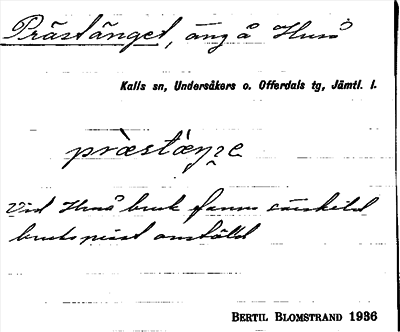 Prästänget, äng å Huså
Kalls sn, Undersåkers o. Offerdals tg, Jämtl. l.
præstæŋ₂e
Vid Huså bruk fanns särskild
brukspräst anställd
BERTIL BLOMSTRAND 1936